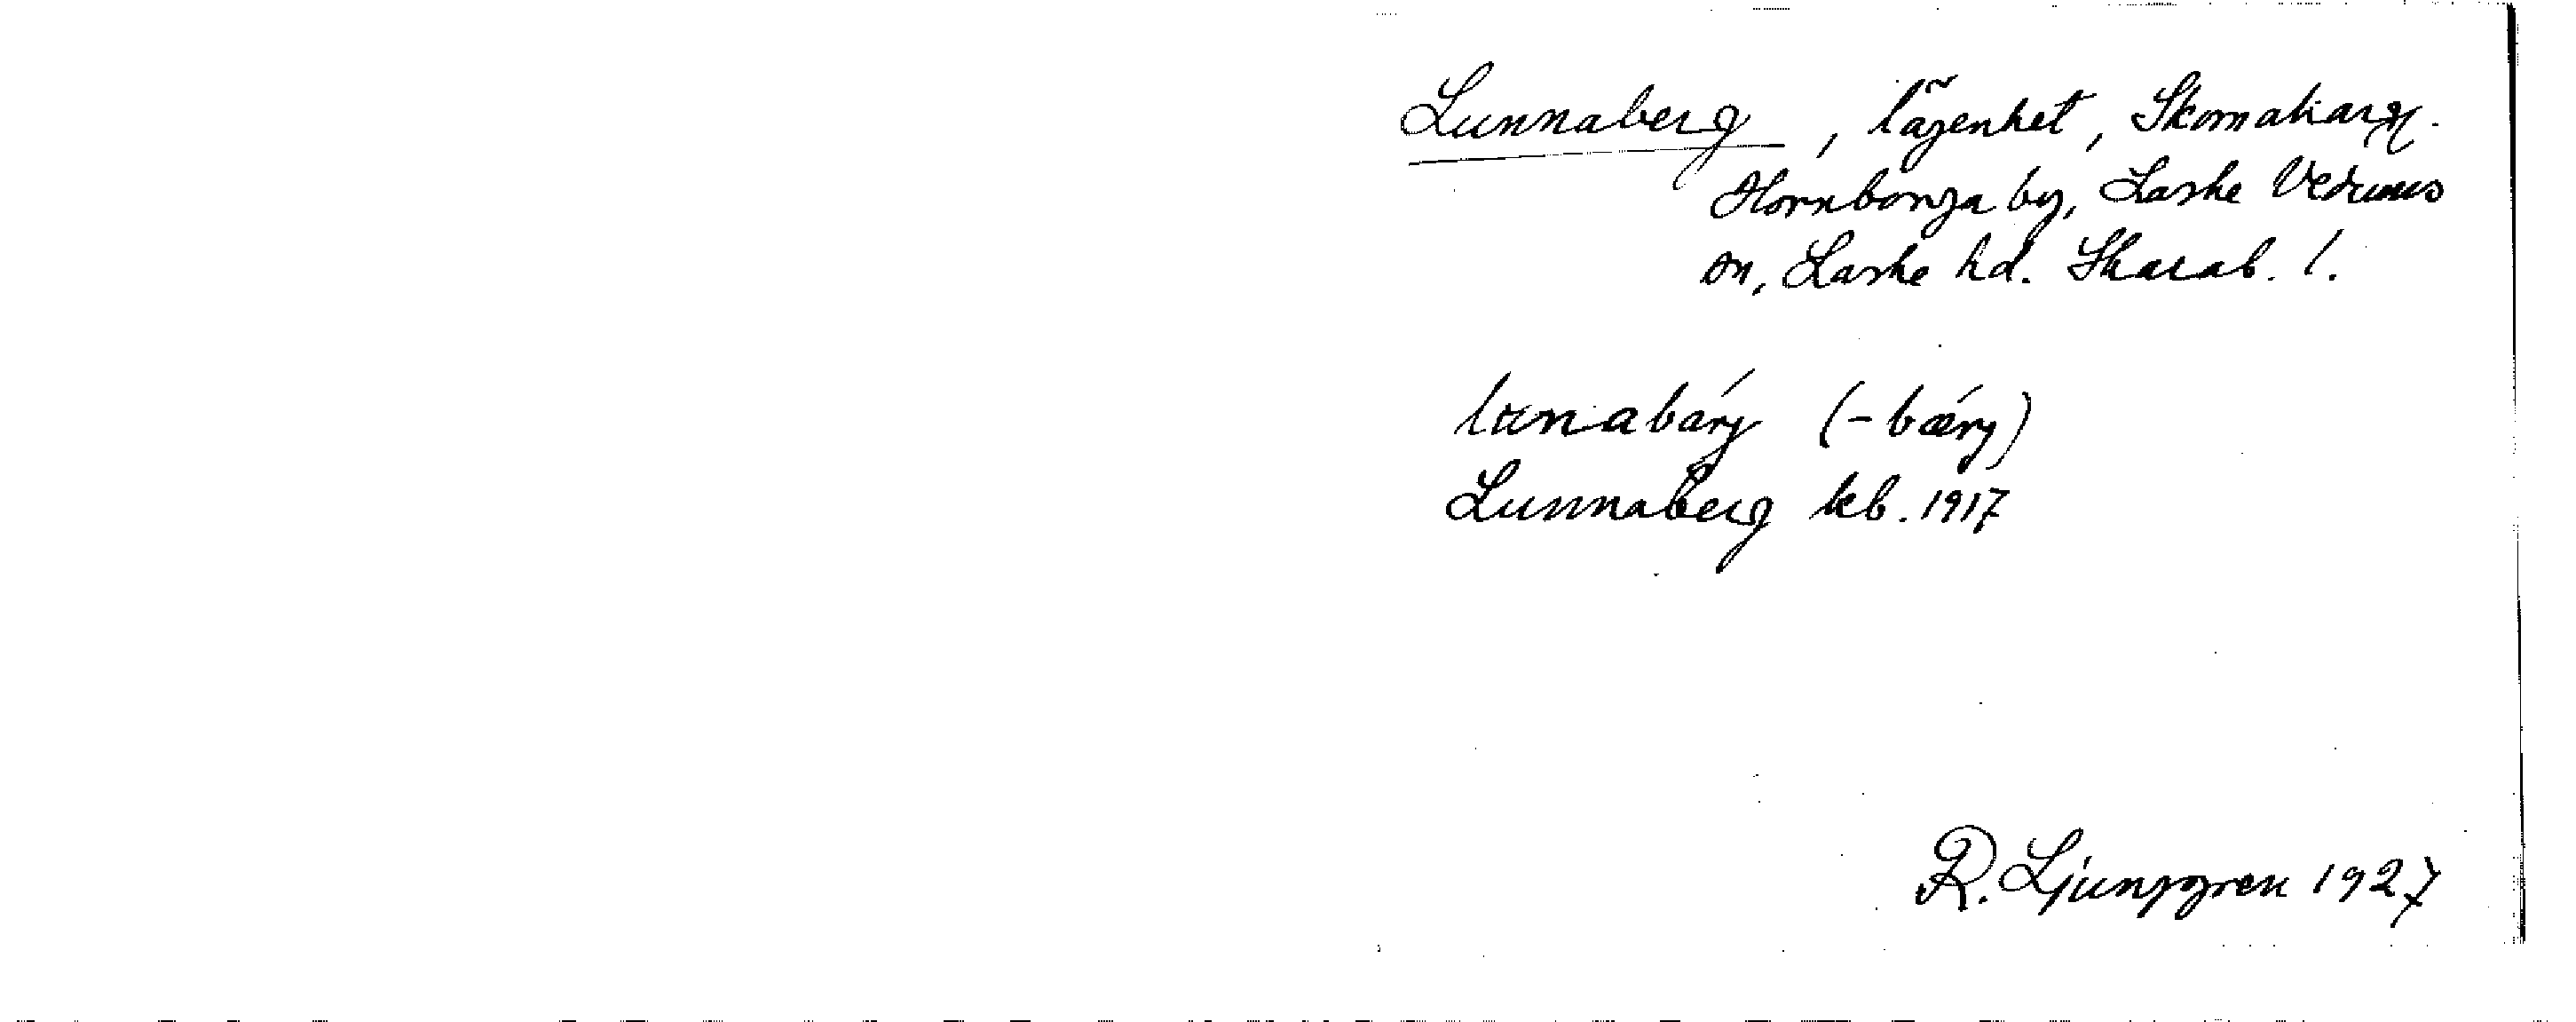 Lunnaberg, lägenhet, Skomakarg.
Hornborga by, Laske Vedums
sn, Laske hd. Skarab. l.
lunabárj (-bǽrj)
Lunnaberg kb. 1917
R. Ljunggren 1927